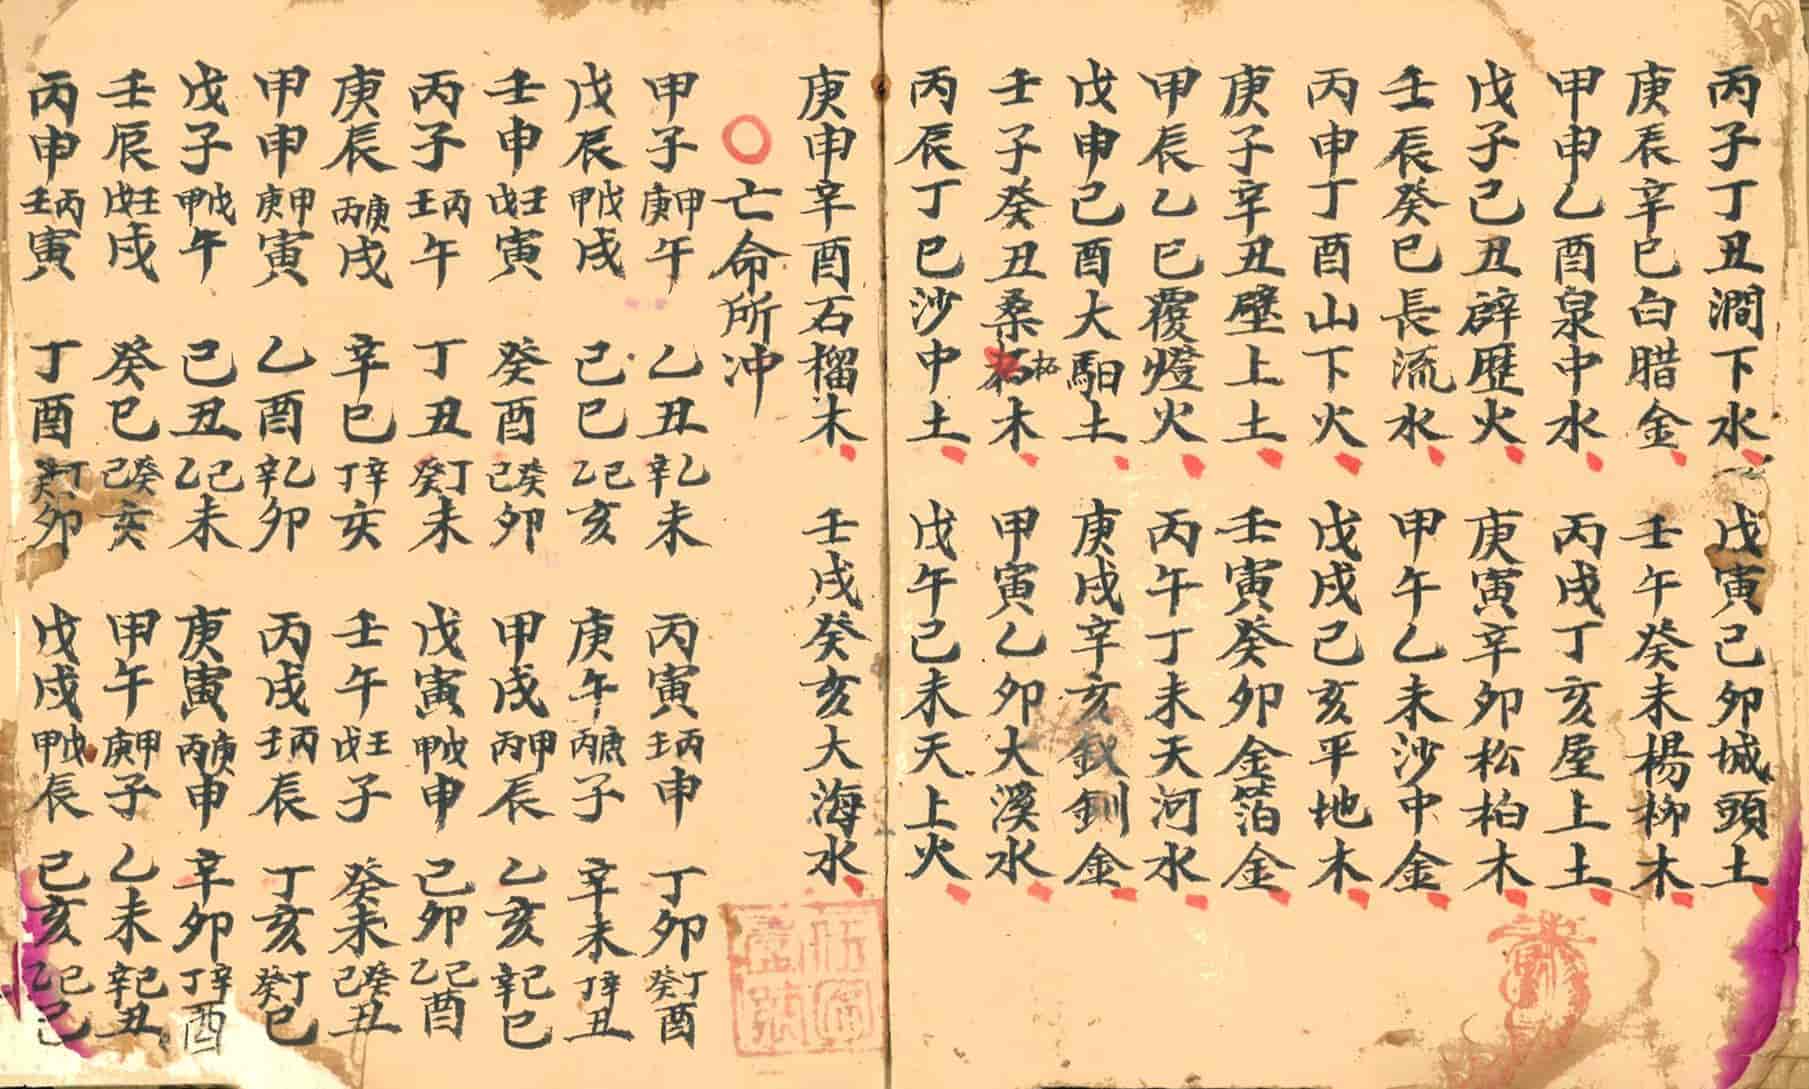 丙子丁丑澗下水 戊寅己卯城頭土
庚辰辛巳白腊金 壬午癸未楊柳木
甲申乙酉泉中水 丙戌丁亥屋上土
戊子己丑辟歷火 庚寅辛卯松柏木
壬辰癸巳長流水 甲午乙未沙中金
丙申丁酉山下火 戊戌己亥平地木
庚子辛丑壁上土 壬寅癸卯金箔金
甲辰乙巳覆燈火 丙午丁未天河水
戊申己酉大馹土 庚戌辛亥釵釧金
壬子癸丑桑柘木 甲寅乙卯大溪水
丙辰丁巳沙中土 戊午己未天上火
庚申辛酉石榴木 壬戌癸亥大海水
○亡命所冲
甲子甲庚午 乙丑乙辛未 丙寅丙壬申 丁卯丁癸酉
戊辰戊甲戌 己巳己乙亥 庚午庚丙子 辛未辛丁丑
壬申壬戊寅 癸酉癸己卯 甲戌甲丙辰 乙亥己辛巳
丙子丙壬午 丁丑丁癸未 戊寅戊甲申 己卯己乙酉
庚辰庚丙戌 辛巳辛丁亥 壬午壬戊子 癸未癸己丑
甲申甲庚寅 乙酉乙辛卯 丙戌丙壬辰 丁亥丁癸巳
戊子戊甲午 己丑己乙未 庚寅庚丙申 辛卯辛丁酉
壬辰壬戊戌 癸巳癸己亥 甲午甲庚子 乙未己辛丑
丙申丙壬寅 丁酉丁癸卯 戊戌戊甲辰 己亥己乙巳